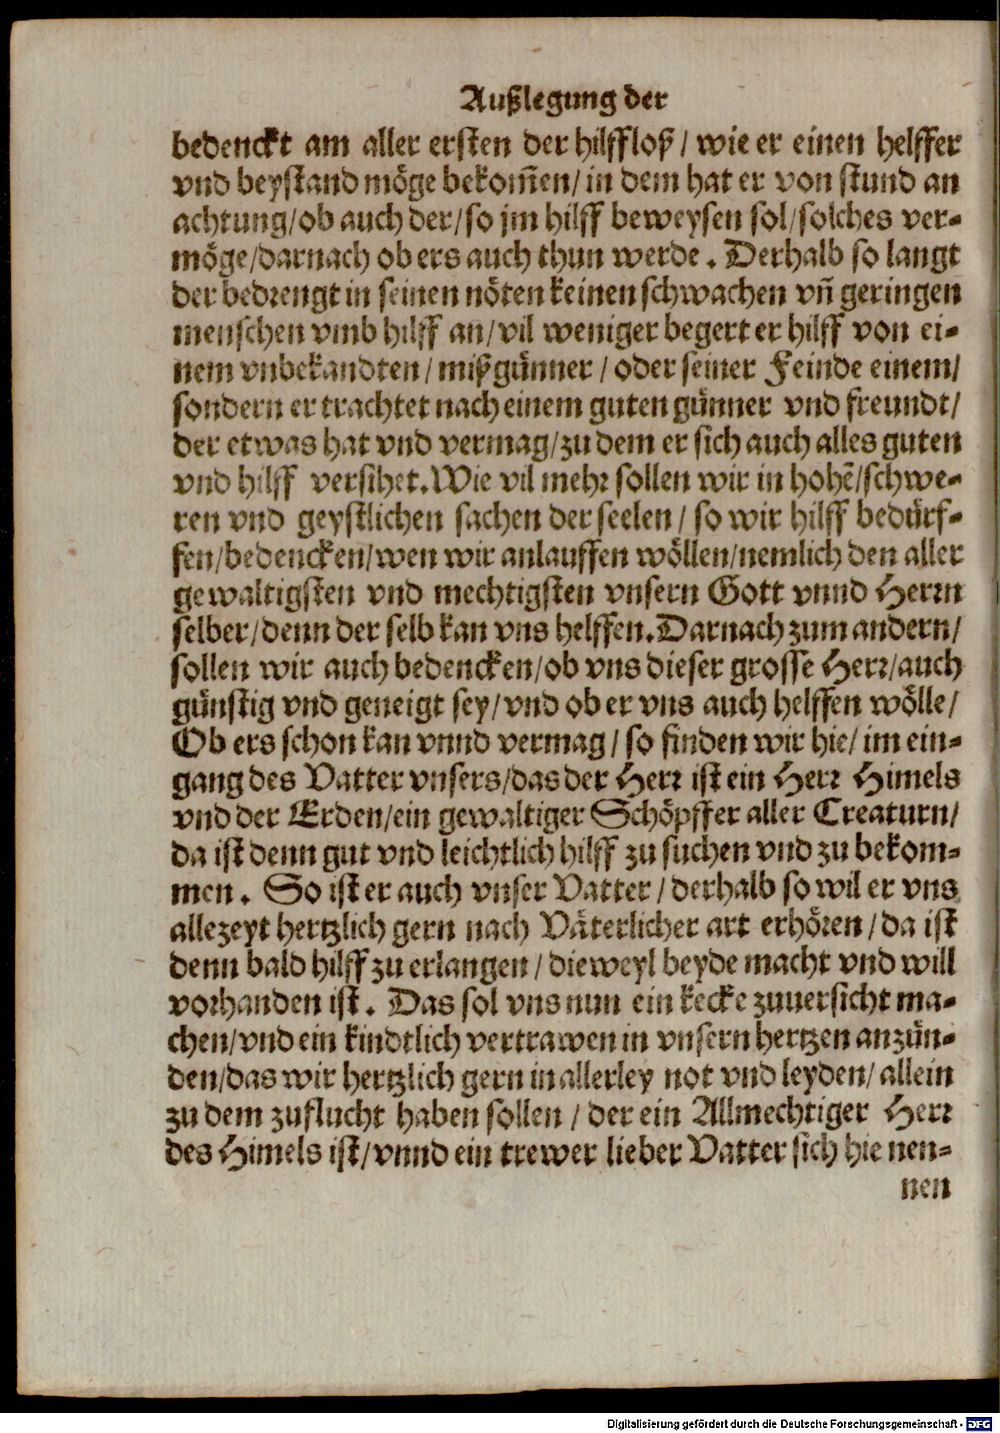 Außlegung der
bedenckt am aller ersten der hilffloß / wie er einen helffer
vnd beystand möge bekom̃en / in dem hat er von stund an
achtung / ob auch der / so jm hilff beweysen sol / solches ver-
möge / darnach ob ers auch thun werde . Derhalb so langt
der bedrengt in seinen nöten keinen schwachen vñ geringen
menschen vmb hilff an / vil weniger begert er hilff von ei-
nem vnbekandten / mißgünner / oder seiner Feinde einem /
sondern er trachtet nach einem guten günner vnd freundt /
der etwas hat vnd vermag / zu dem er sich auch alles guten
vnd hilff versihet . Wie vil mehr sollen wir in hohẽ / schwe-
ren vnd geystlichen sachen der seelen / so wir hilff bedürf-
fen / bedencken / wen wir anlauffen wöllen / nemlich den aller
gewaltigsten vnd mechtigsten vnsern Gott vnnd Herrn
selber / denn der selb kan vns helffen . Darnach zum andern /
sollen wir auch bedencken / ob vns dieser grosse Herr / auch
günstig vnd geneigt sey / vnd ob er vns auch helffen wölle /
Ob ers schon kan vnnd vermag / so finden wir hie / im ein-
gang des Vatter vnsers / das der Herr ist ein Herr Himels
vnd der Erden / ein gewaltiger Schöpffer aller Creaturn /
da ist denn gut vnd leichtlich hilff zu suchen vnd zu bekom-
men . So ist er auch vnser Vatter / derhalb so wil er vns
allezeyt hertzlich gern nach Väterlicher art erhören / da ist
denn bald hilff zu erlangen / dieweyl beyde macht vnd will
vorhanden ist . Das sol vns nun ein kecke zuuersicht ma-
chen / vnd ein kindtlich vertrawen in vnsern hertzen anzün-
den / das wir hertzlich gern in allerley not vnd leyden / allein
zu dem zuflucht haben sollen / der ein Allmechtiger Herr
des Himels ist / vnnd ein trewer lieber Vatter sich hie nen-
nen
Digitalisierung gefördert durch die Deutsche Forschungsgemeinschaft - DFG